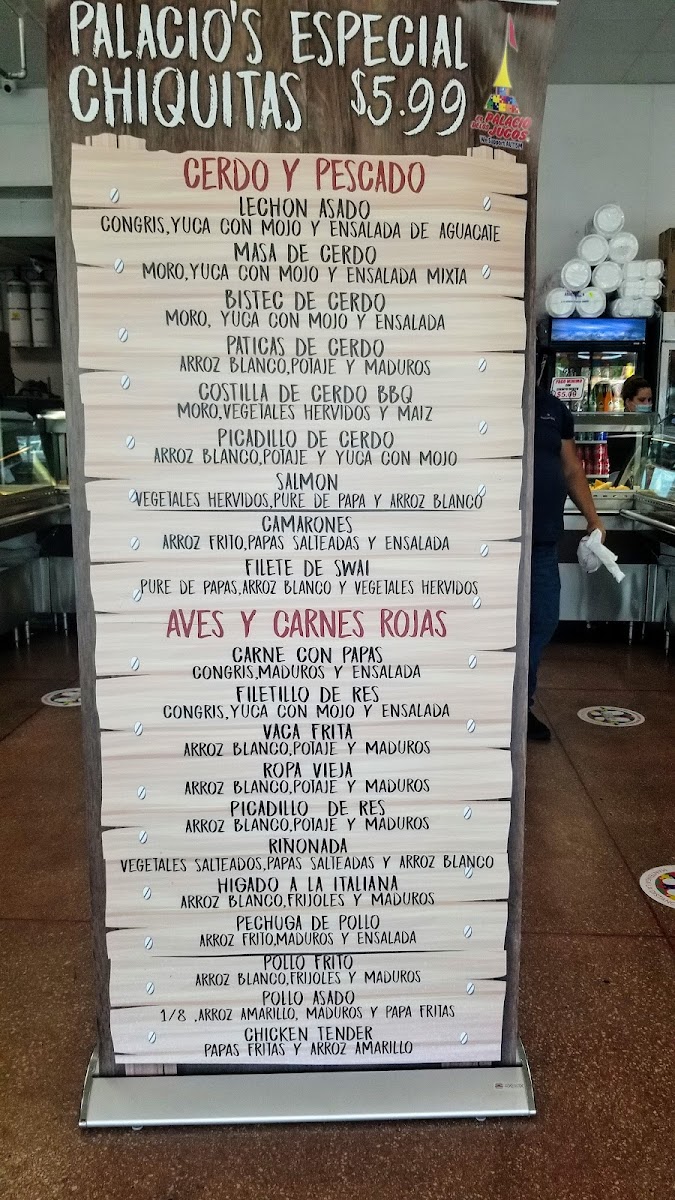 PALACIO'S ESPECIAL
CHIQUITAS $5.99
EL PALACIO
DE LOS JUGOS
CERDO Y PESCADO
LECHON ASADO
CONGRIS,YUCA CON MOJO Y ENSALADA DE AGUACATE
MASA DE CERDO
MORO,YUCA CON MOJO Y ENSALADA MIXTA
BISTEC DE CERDO
MORO, YUCA CON MOJO Y ENSALADA
PATICAS DE CERDO
ARROZ BLANCO,POTAJE Y MADUROS
COSTILLA DE CERDO BBQ
MORO,VEGETALES HERVIDOS Y MAIZ
PICADILLO DE CERDO
ARROZ BLANCO,POTAJE Y YUCA CON MOJO
SALMON
VEGETALES HERVIDOS,PURE DE PAPA Y ARROZ BLANCO
CAMARONES
ARROZ FRITO,PAPAS SALTEADAS Y ENSALADA
FILETE DE SWAI
PURE DE PAPAS,ARROZ BLANCO Y VEGETALES HERVIDOS
AVES Y CARNES ROJAS
CARNE CON PAPAS
CONGRIS,MADUROS Y ENSALADA
FILETILLO DE RES
CONGRIS,YUCA CON MOJO Y ENSALADA
VACA FRITA
ARROZ BLANCO,POTAJE Y MADUROS
ROPA VIEJA
ARROZ BLANCO,POTAJE Y MADUROS
PICADILLO DE RES
ARROZ BLANCO,POTAJE Y MADUROS
RINONADA
VEGETALES SALTEADOS,PAPAS SALTEADAS Y ARROZ BLANCO
HIGADO A LA ITALIANA
ARROZ BLANCO,FRIJOLES Y MADUROS
PECHUGA DE POLLO
ARROZ FRITO,MADUROS Y ENSALADA
POLLO FRITO
ARROZ BLANCO,FRIJOLES Y MADUROS
POLLO ASADO
1/8 ,ARROZ AMARILLO, MADUROS Y PAPA FRITAS
CHICKEN TENDER
PAPAS FRITAS Y ARROZ AMARILLO
$5.00